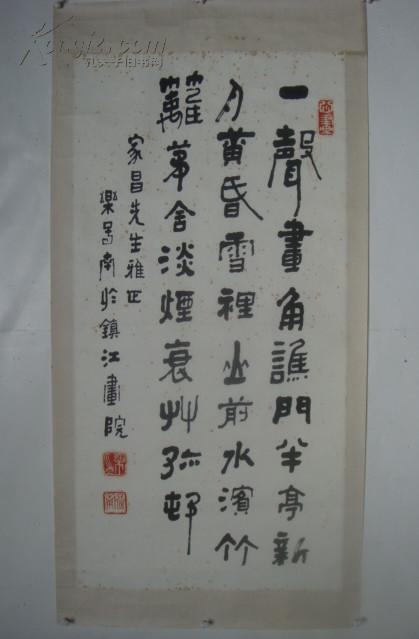 一聲畫角譙門半亭新
月黃昏雪裡山前水濱竹
籬茅舍淡煙衰艸孤邨
家昌先生雅正
樂南於鎮江畫院
Kongfz.com
孔夫子旧书网